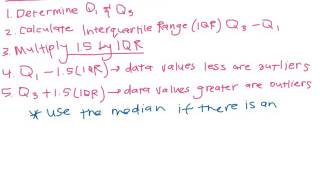 1. Determine Q₁ & Q₃
2. Calculate Interquartile Range (IQR) Q₃ - Q₁
3. Multiply 1.5 by IQR
4. Q₁ - 1.5(IQR) → data values less are outliers
5. Q₃ + 1.5(IQR) → data values greater are outliers
* use the median if there is an